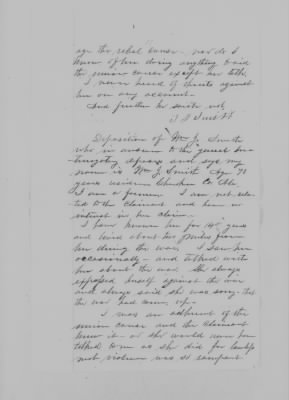 age the rebel cause - nor do I
know of her doing anything to aid
the union cause except her talk
I never heard of threats against
her on any account.
And further he saith not
J. J. Smith
Deposition of Wm J. Smith
who in answer to the general in-
terrogatory deposes and says my
name is Wm J. Smith Age 71
years residence Cherokee Co. Ala
I am a farmer I am not rela-
ted to the claimant and have no
interest in her claim.
I have known her for 145 years
and lived about two miles from
her during the war. I saw her
occasionally - and talked with
her about the war. She always
expressed herself against the war
and always said she was sorry that
the war had come up.
I was an adherent of the
union cause and the claimant
knew it - or she would never have
talked to me as she did for
mob violence was so rampant